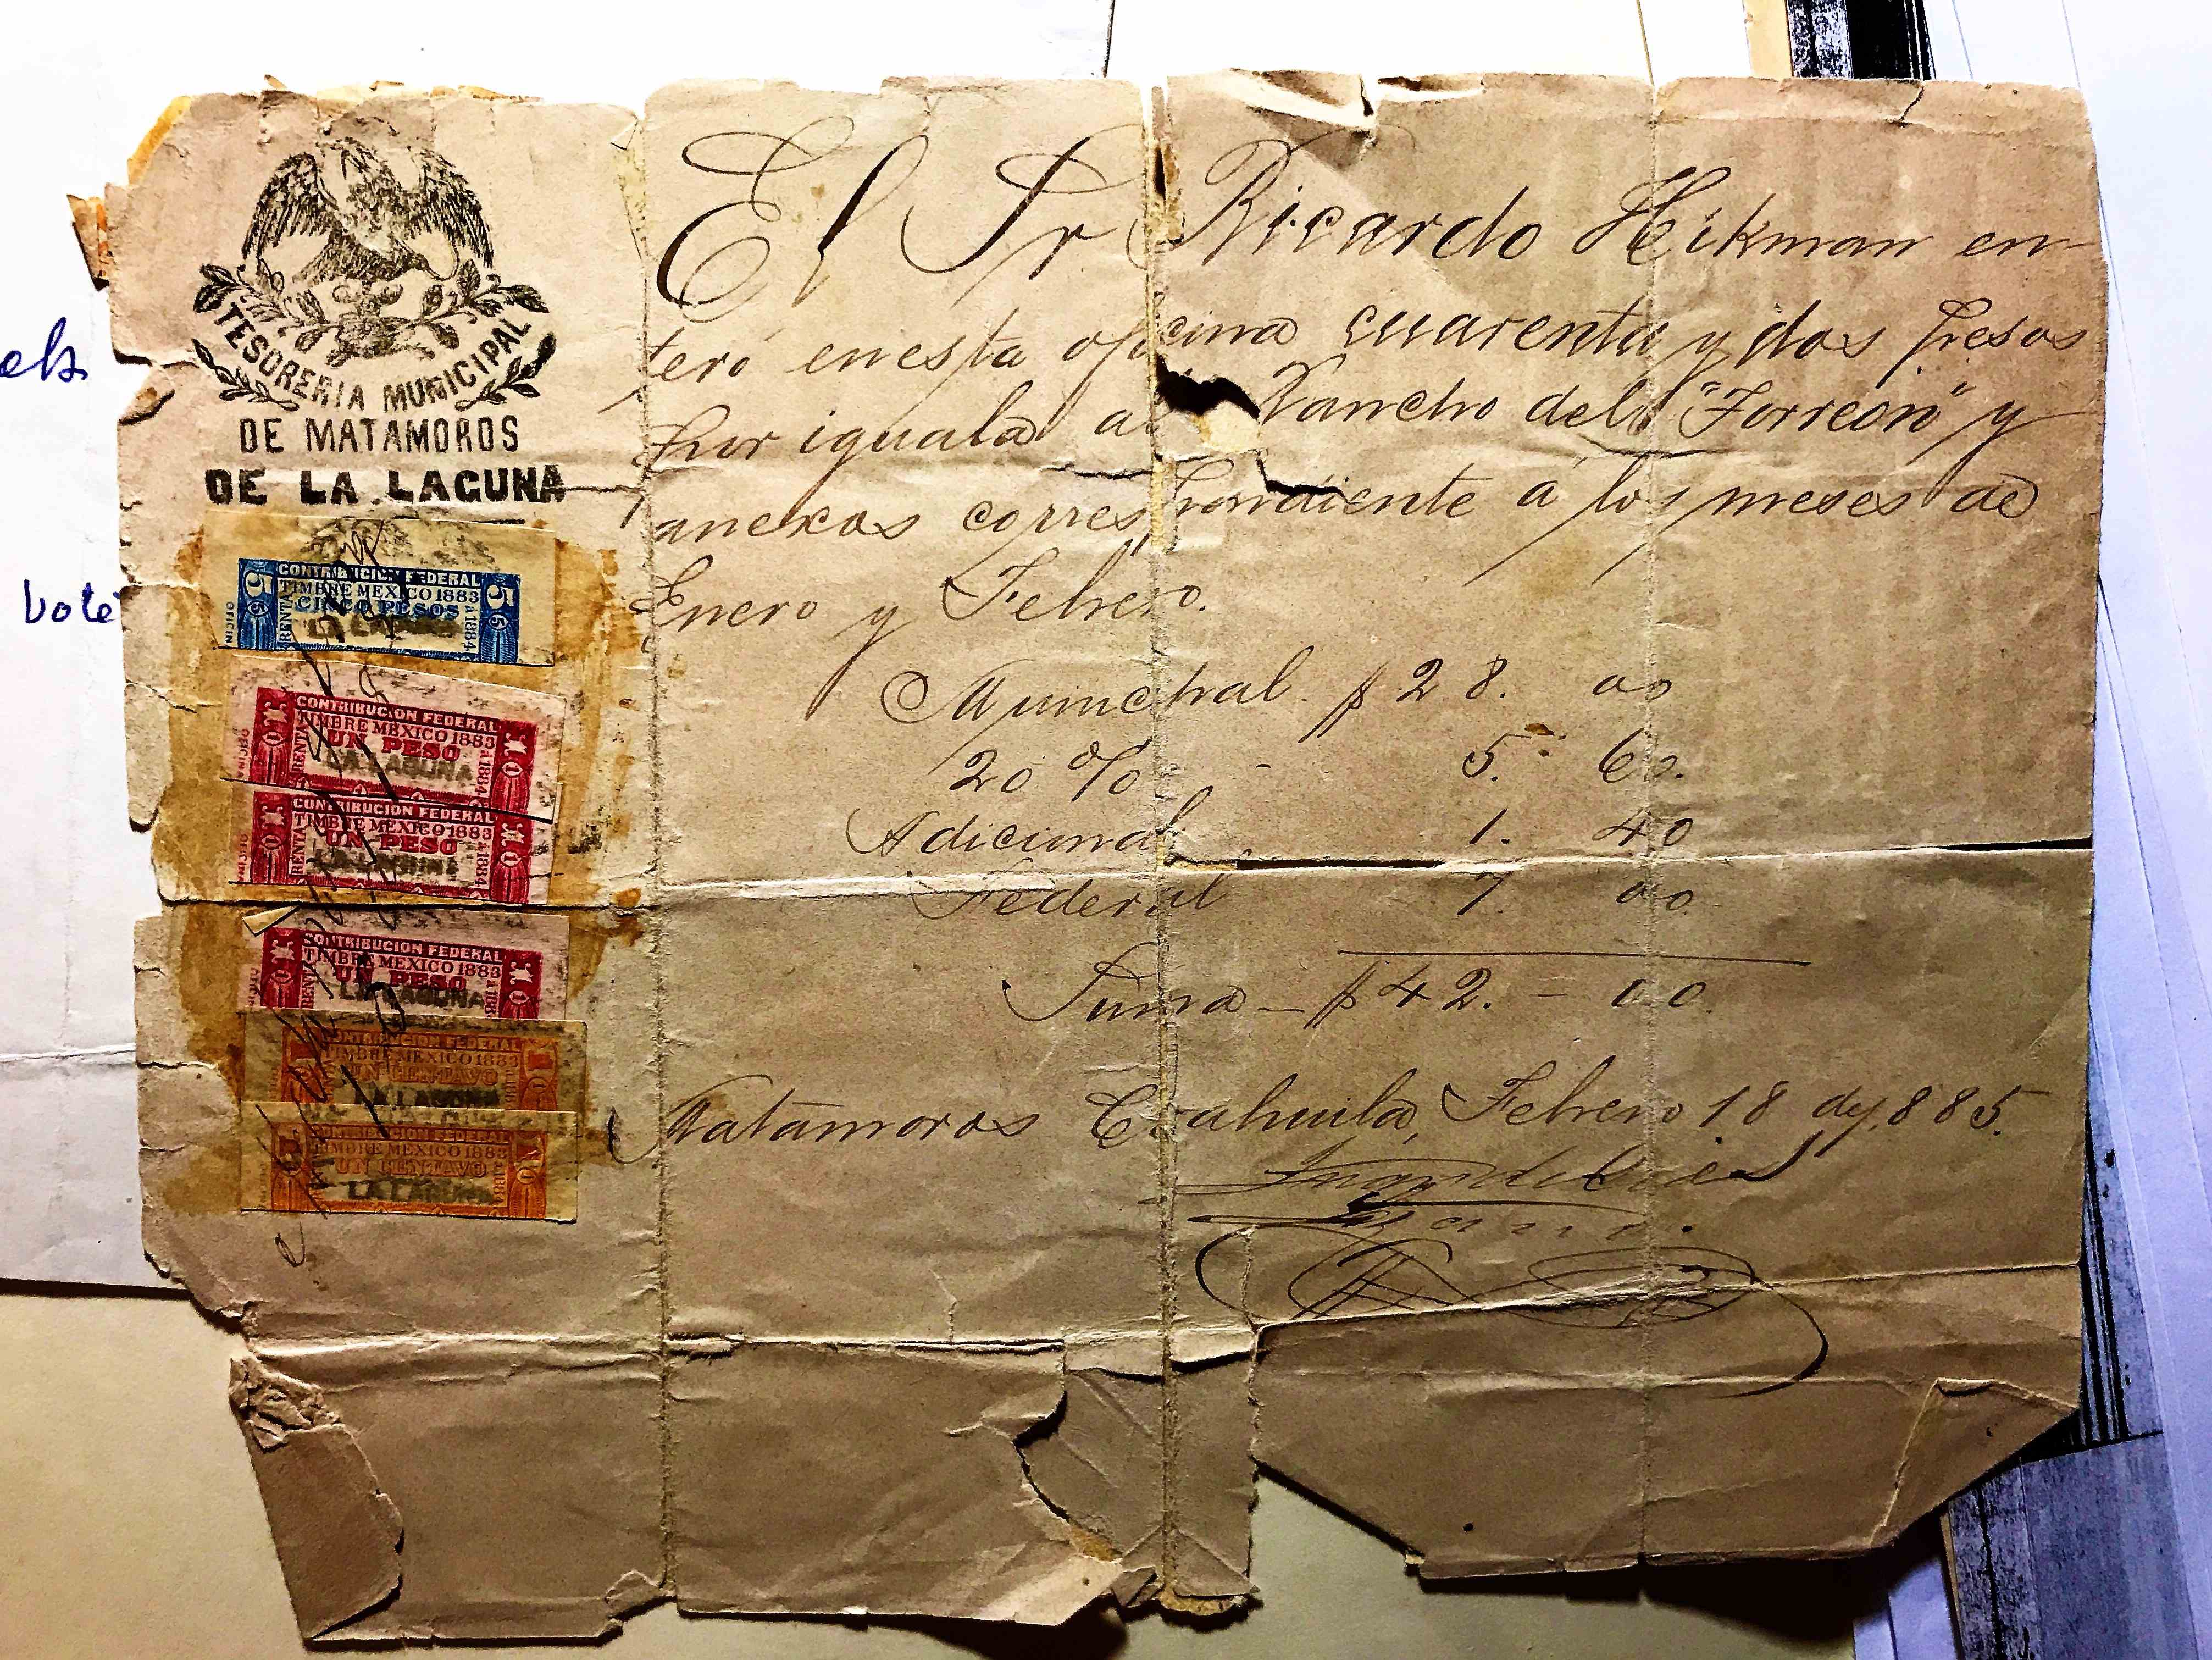 els
voté
TESORERIA MUNICIPAL
DE MATAMOROS
DE LA LAGUNA
El Sr Ricardo Hikman en-
teró en esta oficina cuarenta y dos pesos
por iguala al Rancho del "Torreon" y
anexos correspondiente á los meses de
Enero y Febrero.
Municipal. $ 28. 00
20 % - 5. 60.
Adicional 1. 40
Federal 7. 00
Suma - $ 42. - 00
Matamoros Coahuila, Febrero 18 de 1885.
CONTRIBUCION FEDERAL
TIMBRE MEXICO 1883
CINCO PESOS
LA LAGUNA
5 5
RENTA
a 1884
OFICIN
CONTRIBUCION FEDERAL
TIMBRE MEXICO 1883
UN PESO
LA LAGUNA
RENTA
a 1884
OFICINA
CONTRIBUCION FEDERAL
TIMBRE MEXICO 1883
UN PESO
LA LAGUNA
RENTA
a 1884
CONTRIBUCION FEDERAL
TIMBRE MEXICO 1883
UN PESO
LA LAGUNA
CONTRIBUCION FEDERAL
TIMBRE MEXICO 1883
UN CENTAVO
LA LAGUNA
CONTRIBUCION FEDERAL
TIMBRE MEXICO 1883
UN CENTAVO
LA LAGUNA